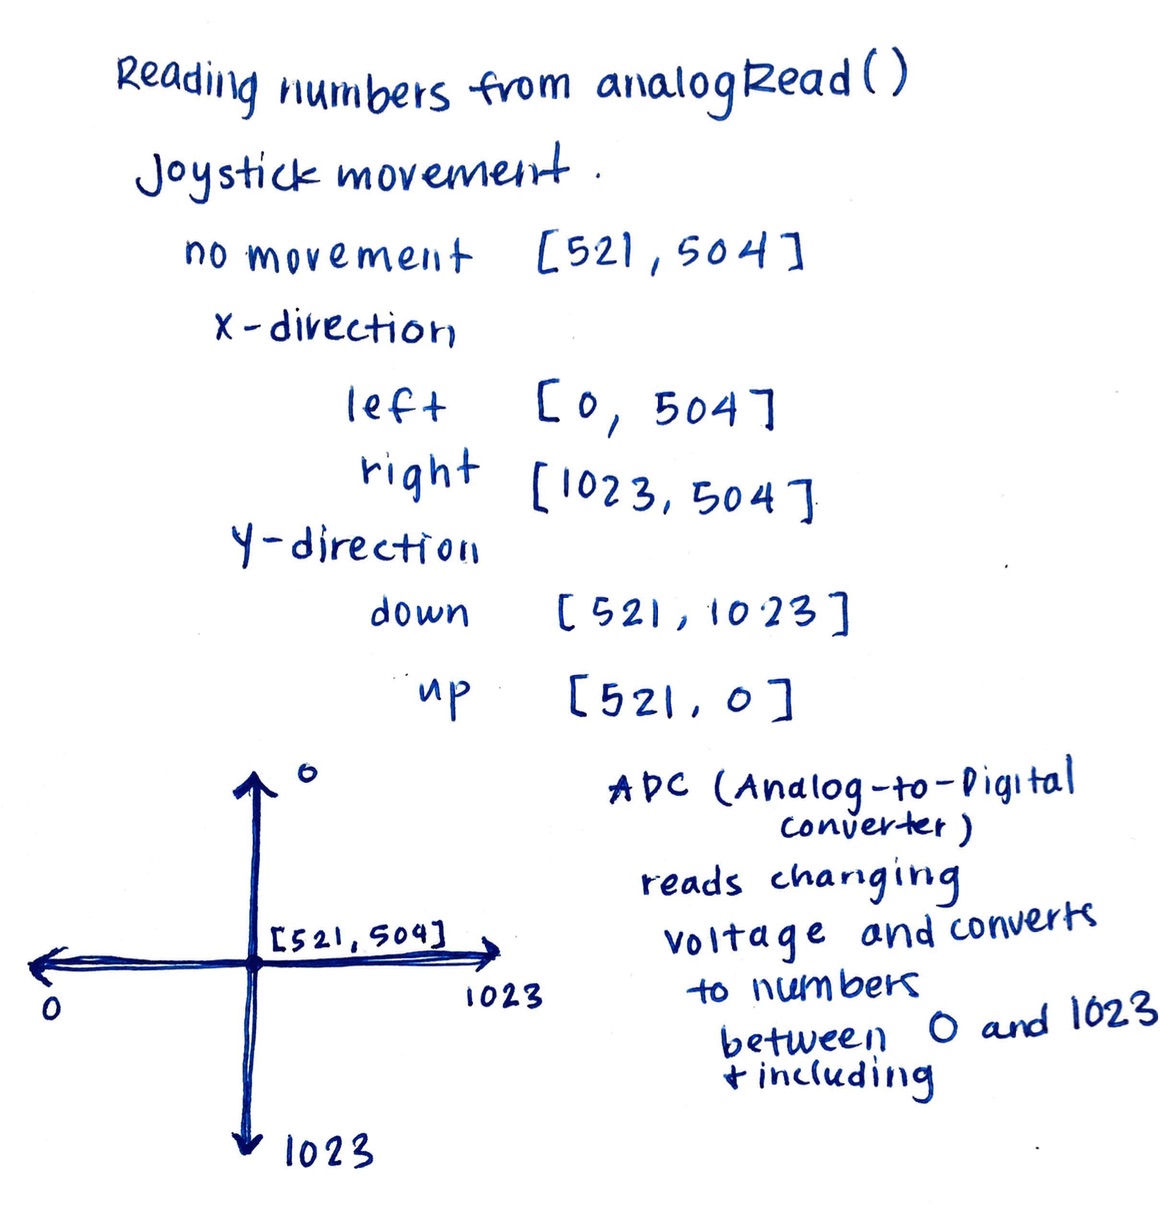 Reading numbers from analogRead()
Joystick movement.
no movement [521, 504]
x-direction
left [0, 504]
right [1023, 504]
y-direction
down [521, 1023]
up [521, 0]
0
[521, 504]
0
1023
1023
ADC (Analog-to-Digital
converter)
reads changing
voltage and converts
to numbers
between 0 and 1023
+ including